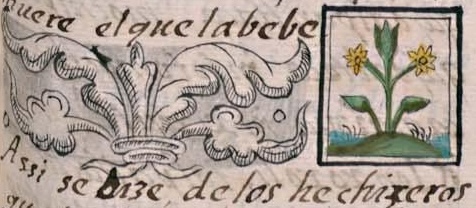 quere el que la bebe
Assi se dize, de los hechizeros